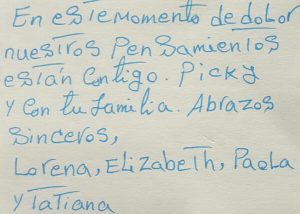 En este momento de dolor
nuestros pensamientos
están contigo. Picky
y con tu familia. Abrazos
sinceros,
Lorena, Elizabeth, Paola
y Tatiana